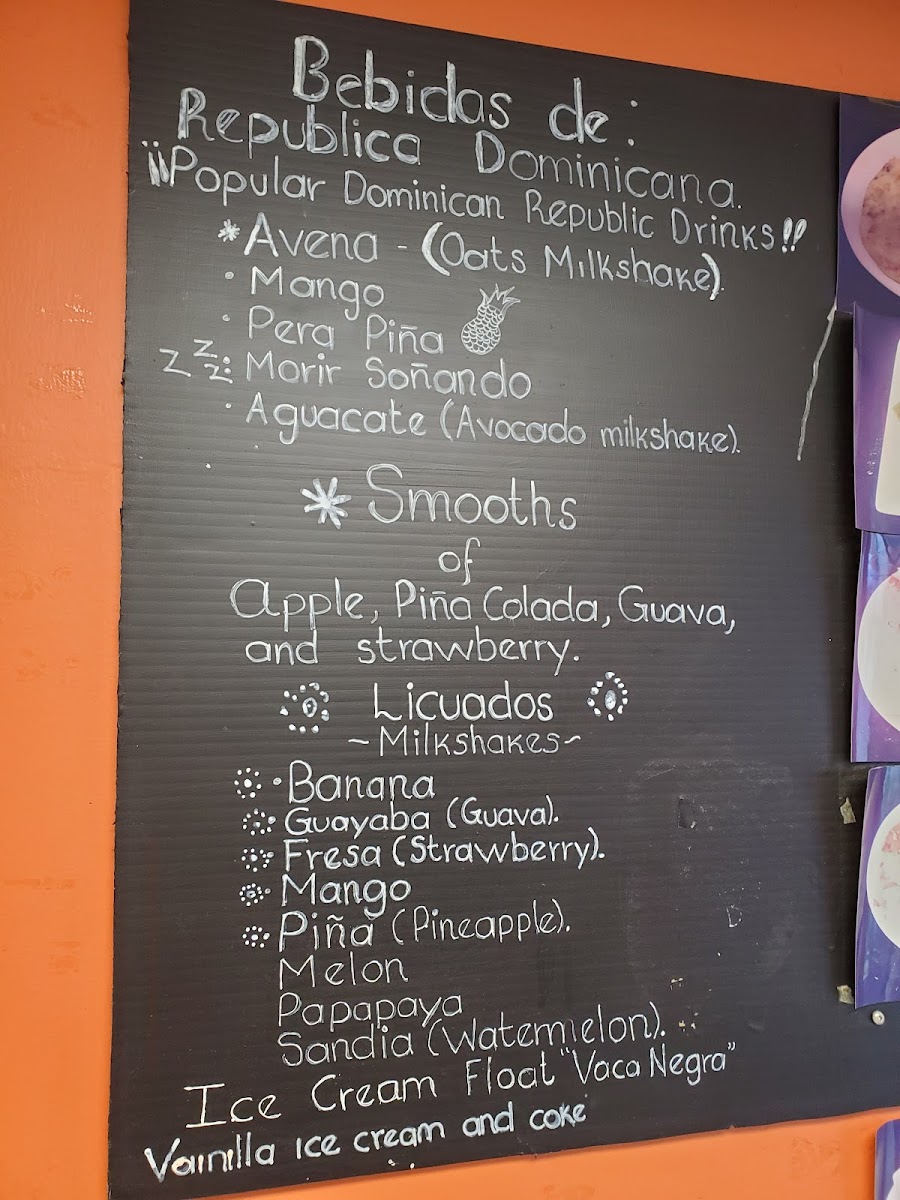 Bebidas de:
Republica Dominicana.
¡¡Popular Dominican Republic Drinks!!
*Avena - (Oats Milkshake).
· Mango
· Pera Piña
z z z · Morir Soñando
· Aguacate (Avocado milkshake).
* Smooths
of
Apple, Piña Colada, Guava,
and strawberry.
Licuados
~Milkshakes~
· Banana
Guayaba (Guava).
Fresa (Strawberry).
Mango
Piña (Pineapple).
Melon
Papapaya
Sandia (Watermelon).
Ice Cream Float "Vaca Negra"
Vainilla ice cream and coke